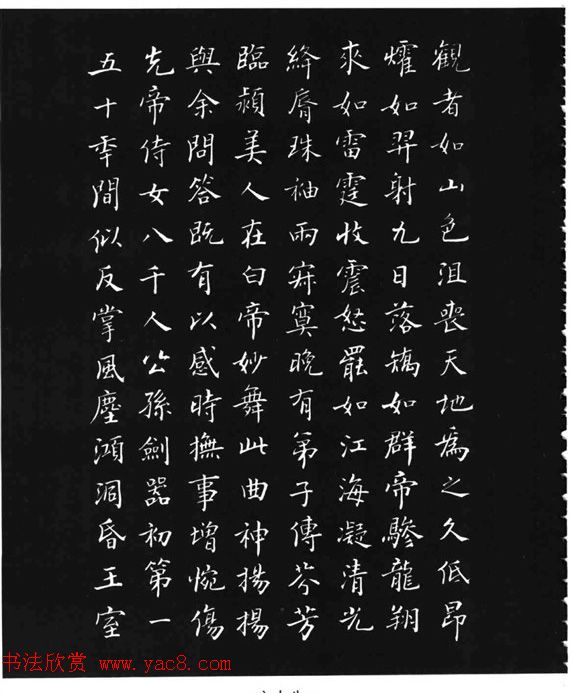 觀者如山色沮喪天地爲之久低昂
燿如羿射九日落矯如群帝驂龍翔
來如雷霆收震怒罷如江海凝清光
絳脣珠袖兩寂寞晚有第子傳芬芳
臨潁美人在白帝妙舞此曲神揚揚
與余問答既有以感時撫事增惋傷
先帝侍女八千人公孫劍器初第一
五十年間似反掌風塵澒洞昏王室
书法欣赏 www.yac8.com